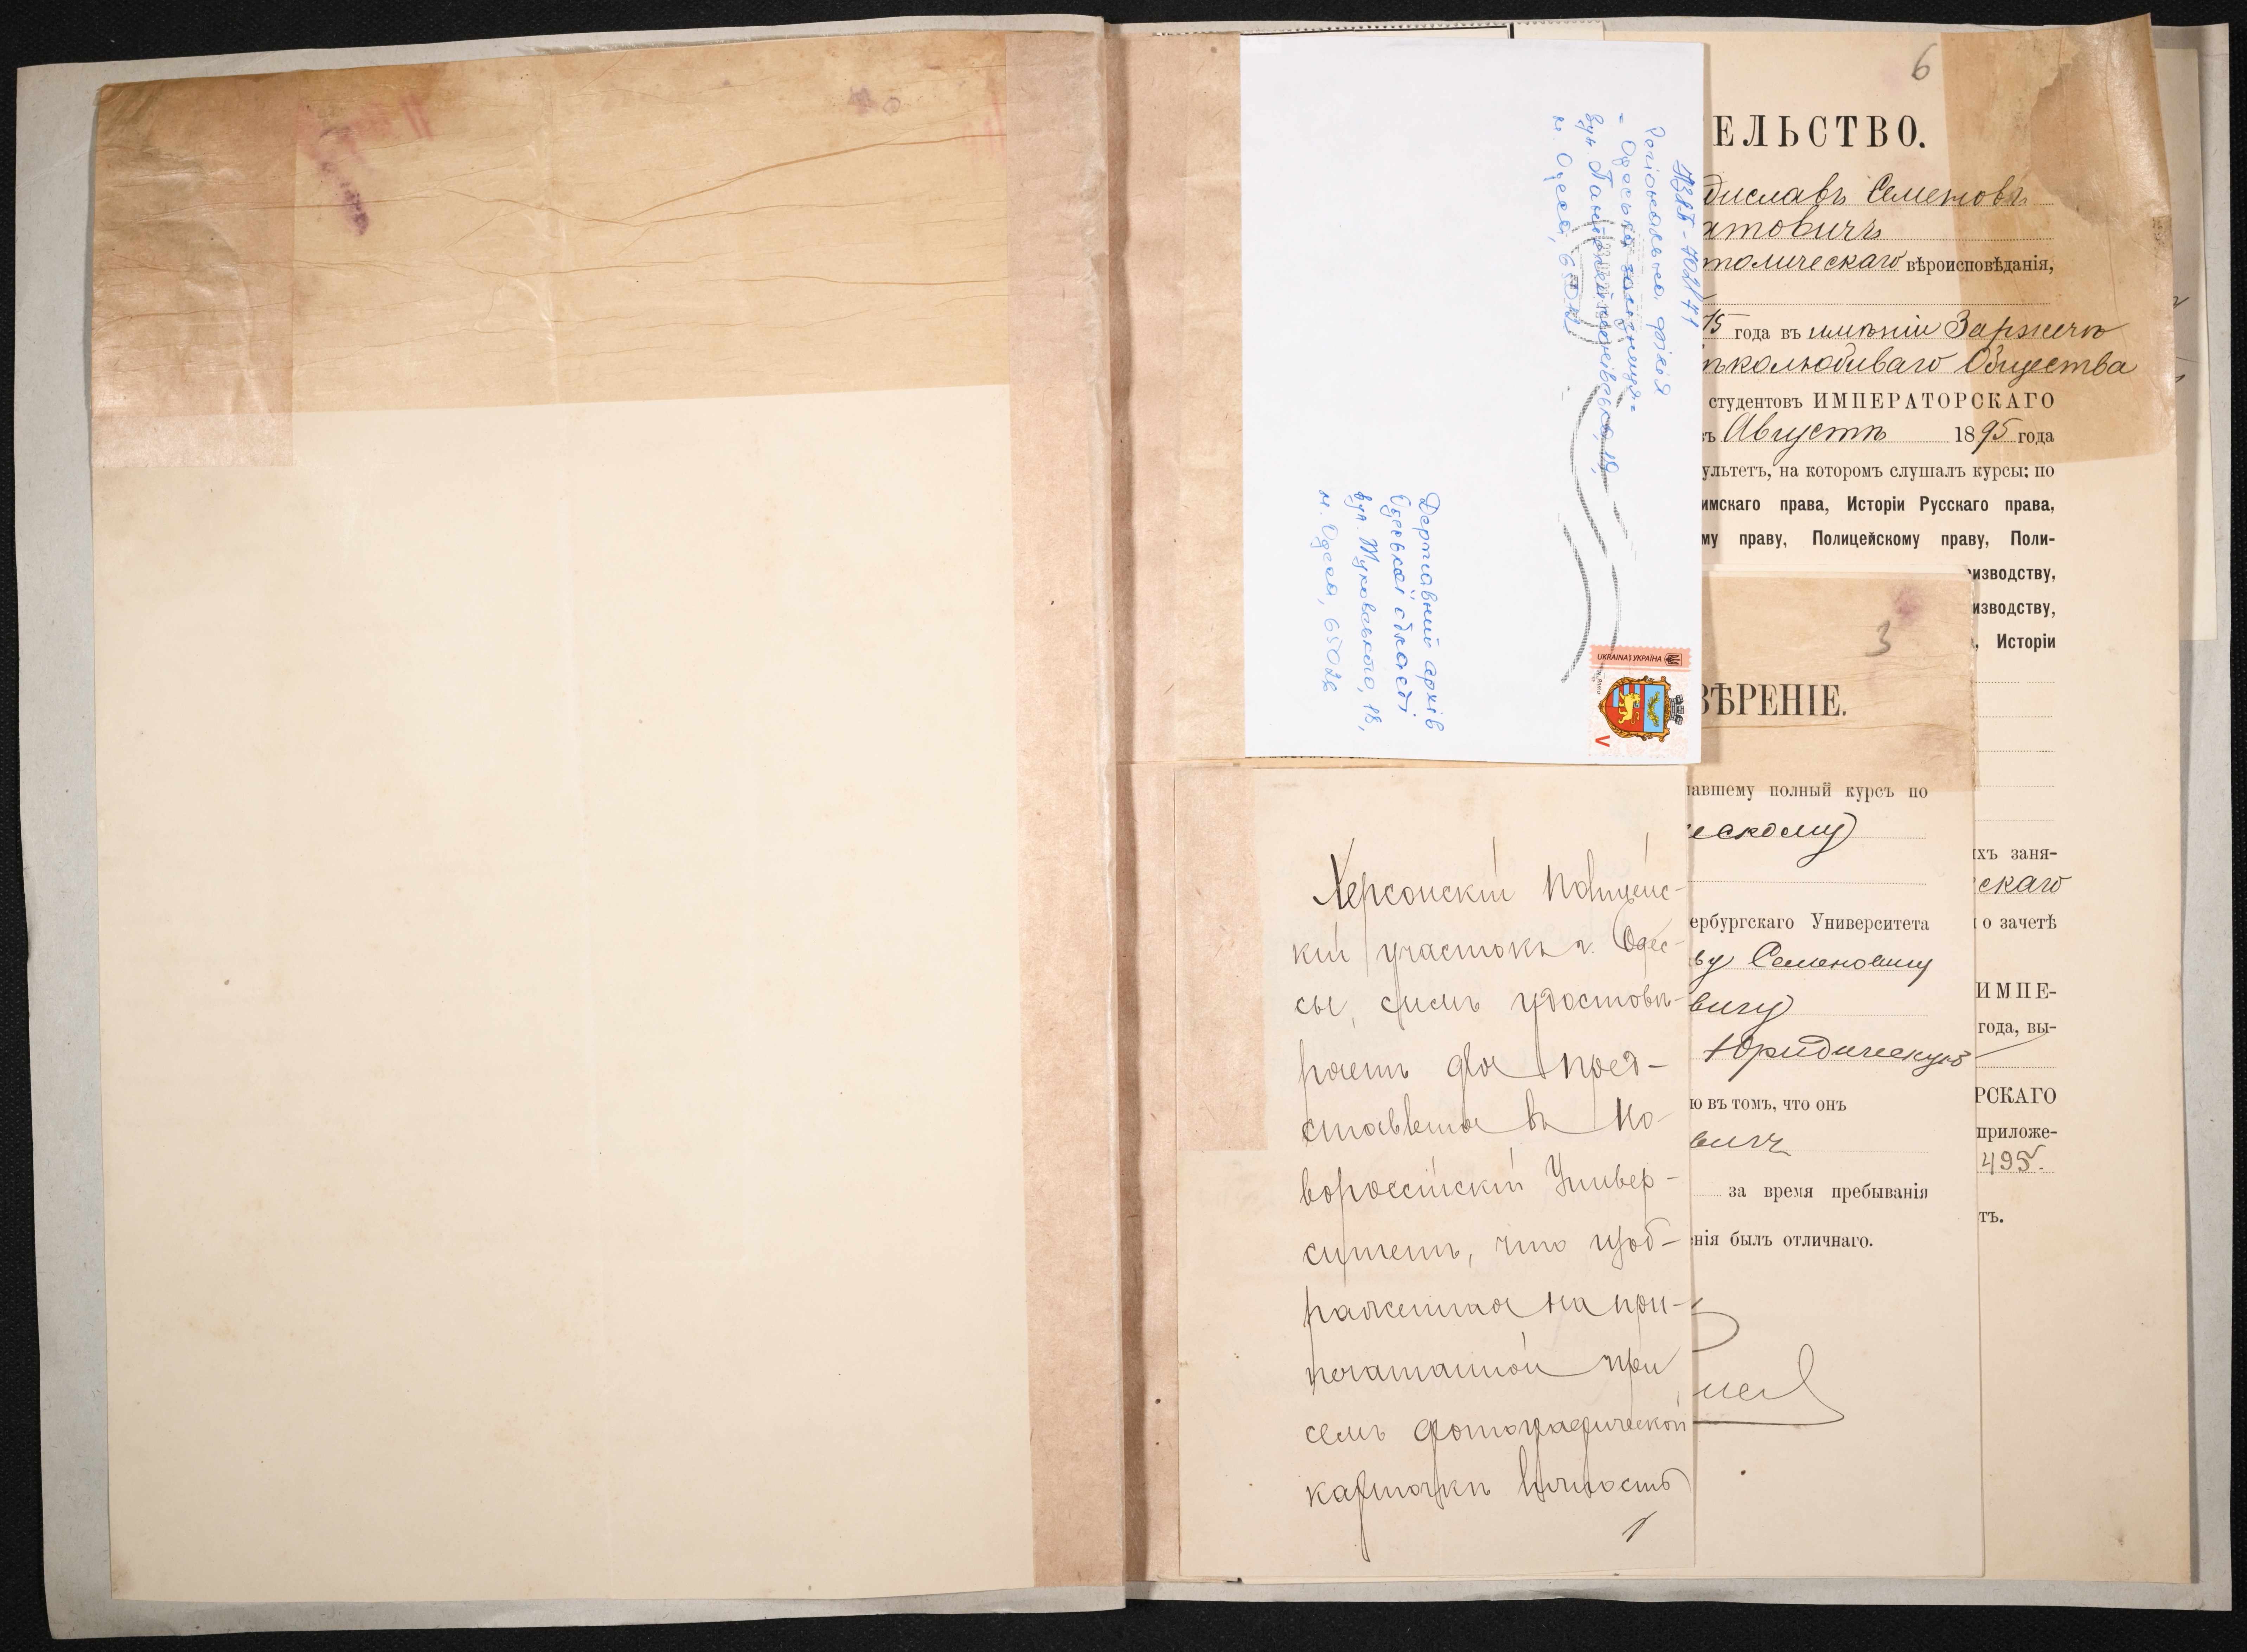 6
ЕЛЬСТВО.
диславъ Семеновъ
атовичъ
толическаго вѣроисповѣданія,
75 года въ имѣніи Заржече
ѣколюбиваго Общества
студентовъ ИМПЕРАТОРСКАГО
ъ Августѣ 1895 года
ультетъ, на которомъ слушалъ курсы: по
имскаго права, Исторіи Русскаго права,
му праву, Полицейскому праву, Поли-
изводству,
изводству,
, Исторіи
ихъ заня-
скаго
о зачетѣ
ИМПЕ-
года, вы-
РСКАГО
приложе-
495.
тъ.
3
ВѢРЕНІЕ.
лавшему полный курсъ по
ческому
ербургскаго Университета
ву Семеновичу
вичу
Юридическую
ю въ томъ, что онъ
вичъ
за время пребыванія
нія былъ отличнаго.
Державний архів
Одеської області
вул. Жуковського, 18,
м. Одеса, 65026
Регіональна філія
"Одеська залізниця"
вул. Пантелеймонівська, 19,
м. Одеса,
UKRAINA УКРАЇНА
V
Херсонскій Полицейс-
кій участокъ г. Одес-
сы, симъ удостовѣ-
ряетъ для пред-
ставленія въ Но-
вороссійскій Универ-
ситетъ, что изоб-
раженная на при-
печатанной при
семъ фотографической
карточкѣ личность